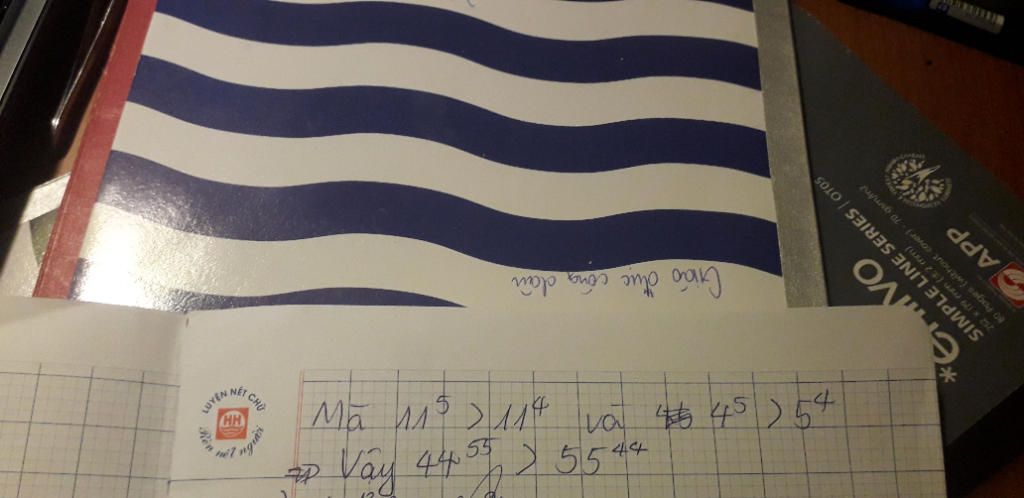 Giáo dục công dân
APP
enlivo
SIMPLE LINE SERIES | 0705
LUYỆN NÉT CHỮ
HH
Rèn nết người
Mà 11⁵ > 11⁴ và 4⁵ > 5⁴
=> Vậy 44⁵⁵ > 55⁴⁴